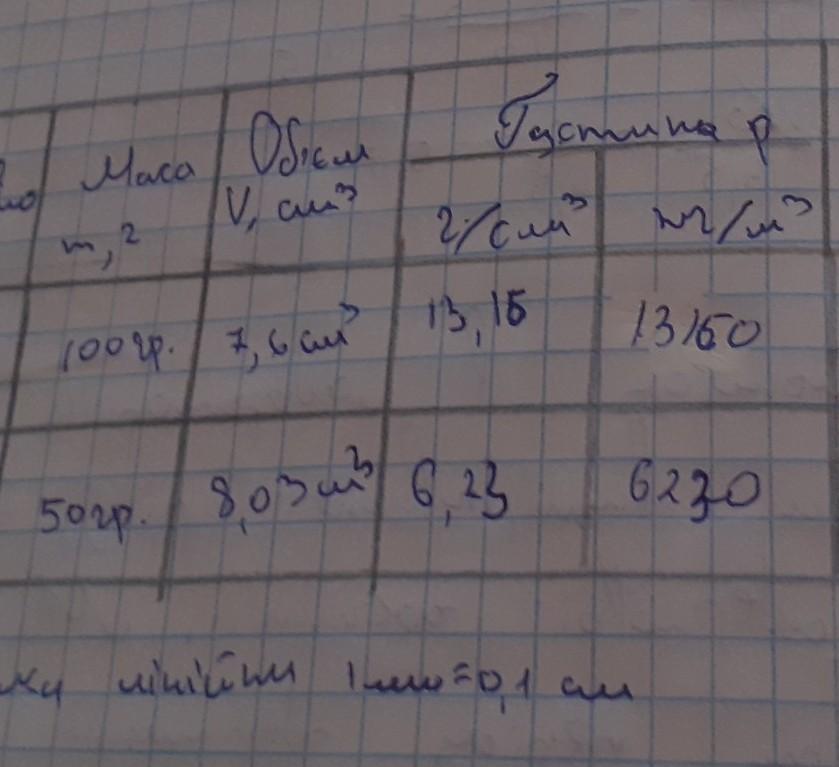 Маса
m, г
Обієм
V, см³
Густина ρ
г/см³
кг/м³
100гр.
7,6 см³
13,15
13150
50гр.
8,03 см³
6,23
6230
лінійки 1мм=0,1 см